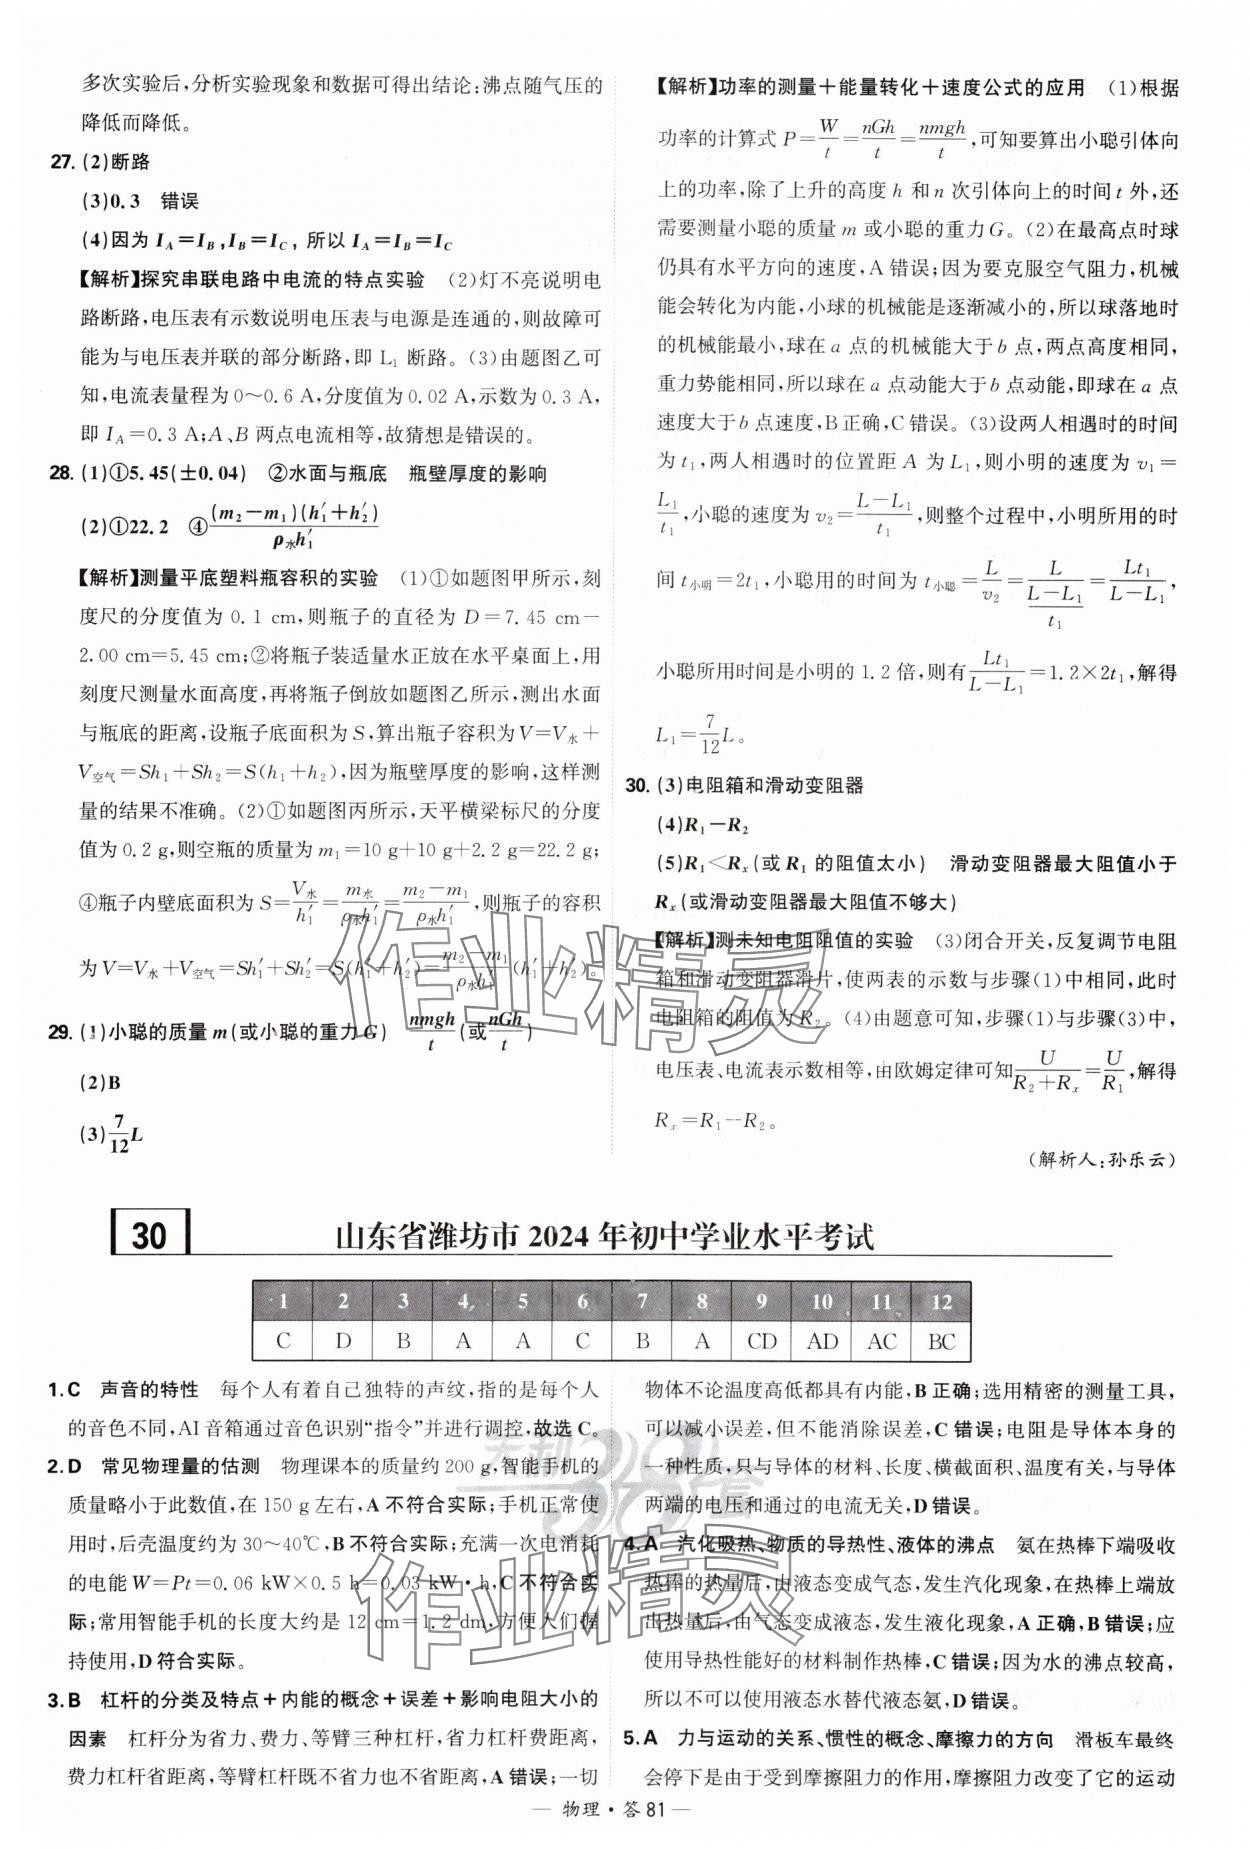 多次实验后,分析实验现象和数据可得出结论:沸点随气压的
降低而降低。
27. (2)断路
(3)0.3 错误
(4)因为 I_A=I_B,I_B=I_C, 所以 I_A=I_B=I_C
【解析】探究串联电路中电流的特点实验 (2)灯不亮说明电
路断路,电压表有示数说明电压表与电源是连通的,则故障可
能为与电压表并联的部分断路,即 L₁ 断路。(3)由题图乙可
知,电流表量程为 0～0.6 A,分度值为 0.02 A,示数为 0.3 A,
即 I_A=0.3 A;A、B 两点电流相等,故猜想是错误的。
28. (1)①5.45(±0.04) ②水面与瓶底 瓶壁厚度的影响
(2)①22.2 ④(m₂-m₁)(h₁′+h₂′)/ρ水h₁′
【解析】测量平底塑料瓶容积的实验 (1)①如题图甲所示,刻
度尺的分度值为 0.1 cm,则瓶子的直径为 D=7.45 cm-
2.00 cm=5.45 cm;②将瓶子装适量水正放在水平桌面上,用
刻度尺测量水面高度,再将瓶子倒放如题图乙所示,测出水面
与瓶底的距离,设瓶子底面积为 S,算出瓶子容积为 V=V水+
V空气=Sh₁+Sh₂=S(h₁+h₂),因为瓶壁厚度的影响,这样测
量的结果不准确。(2)①如题图丙所示,天平横梁标尺的分度
值为 0.2 g,则空瓶的质量为 m₁=10 g+10 g+2.2 g=22.2 g;
④瓶子内壁底面积为 S=V水/h₁′=m水/ρ水h₁′=(m₂-m₁)/ρ水h₁′,则瓶子的容积
为 V=V水+V空气=Sh₁′+Sh₂′=S(h₁′+h₂′)=(m₂-m₁)/ρ水h₁′(h₁′+h₂′)。
29. (1)小聪的质量 m(或小聪的重力 G) nmgh/t(或nGh/t)
(2)B
(3)7/12L
【解析】功率的测量+能量转化+速度公式的应用 (1)根据
功率的计算式 P=W/t=nGh/t=nmgh/t,可知要算出小聪引体向
上的功率,除了上升的高度 h 和 n 次引体向上的时间 t 外,还
需要测量小聪的质量 m 或小聪的重力 G。(2)在最高点时球
仍具有水平方向的速度,A 错误;因为要克服空气阻力,机械
能会转化为内能,小球的机械能是逐渐减小的,所以球落地时
的机械能最小,球在 a 点的机械能大于 b 点,两点高度相同,
重力势能相同,所以球在 a 点动能大于 b 点动能,即球在 a 点
速度大于 b 点速度,B 正确,C 错误。(3)设两人相遇时的时间
为 t₁,两人相遇时的位置距 A 为 L₁,则小明的速度为 v₁=
L₁/t₁,小聪的速度为 v₂=(L-L₁)/t₁,则整个过程中,小明所用的时
间 t小明=2t₁,小聪用的时间为 t小聪=L/v₂=L/((L-L₁)/t₁)=Lt₁/(L-L₁),
小聪所用时间是小明的 1.2 倍,则有Lt₁/(L-L₁)=1.2×2t₁,解得
L₁=7/12L。
30. (3)电阻箱和滑动变阻器
(4)R₁-R₂
(5)R₁<Rₓ(或 R₁ 的阻值太小) 滑动变阻器最大阻值小于
Rₓ(或滑动变阻器最大阻值不够大)
【解析】测未知电阻阻值的实验 (3)闭合开关,反复调节电阻
箱和滑动变阻器滑片,使两表的示数与步骤(1)中相同,此时
电阻箱的阻值为 R₂。(4)由题意可知,步骤(1)与步骤(3)中,
电压表、电流表示数相等,由欧姆定律可知U/(R₂+Rₓ)=U/R₁,解得
Rₓ=R₁-R₂。
(解析人:孙乐云)
30 山东省潍坊市 2024 年初中学业水平考试
1 2 3 4 5 6 7 8 9 10 11 12
C D B A A C B A CD AD AC BC
1. C 声音的特性 每个人有着自己独特的声纹,指的是每个人
的音色不同,AI 音箱通过音色识别“指令”并进行调控,故选 C。
2. D 常见物理量的估测 物理课本的质量约 200 g,智能手机的
质量略小于此数值,在 150 g 左右,A 不符合实际;手机正常使
用时,后壳温度约为 30～40℃,B 不符合实际;充满一次电消耗
的电能 W=Pt=0.06 kW×0.5 h=0.03 kW·h,C 不符合实
际;常用智能手机的长度大约是 12 cm=1.2 dm,方便人们握
持使用,D 符合实际。
3. B 杠杆的分类及特点+内能的概念+误差+影响电阻大小的
因素 杠杆分为省力、费力、等臂三种杠杆,省力杠杆费距离,
费力杠杆省距离,等臂杠杆既不省力也不省距离,A 错误;一切
物体不论温度高低都具有内能,B 正确;选用精密的测量工具,
可以减小误差,但不能消除误差,C 错误;电阻是导体本身的
一种性质,只与导体的材料、长度、横截面积、温度有关,与导体
两端的电压和通过的电流无关,D 错误。
4. A 汽化吸热、物质的导热性、液体的沸点 氨在热棒下端吸收
热棒的热量后,由液态变成气态,发生汽化现象,在热棒上端放
出热量后,由气态变成液态,发生液化现象,A 正确,B 错误;应
使用导热性能好的材料制作热棒,C 错误;因为水的沸点较高,
所以不可以使用液态水替代液态氨,D 错误。
5. A 力与运动的关系、惯性的概念、摩擦力的方向 滑板车最终
会停下是由于受到摩擦阻力的作用,摩擦阻力改变了它的运动
— 物理·答 81 —
作业精灵
天利38套
作业精灵